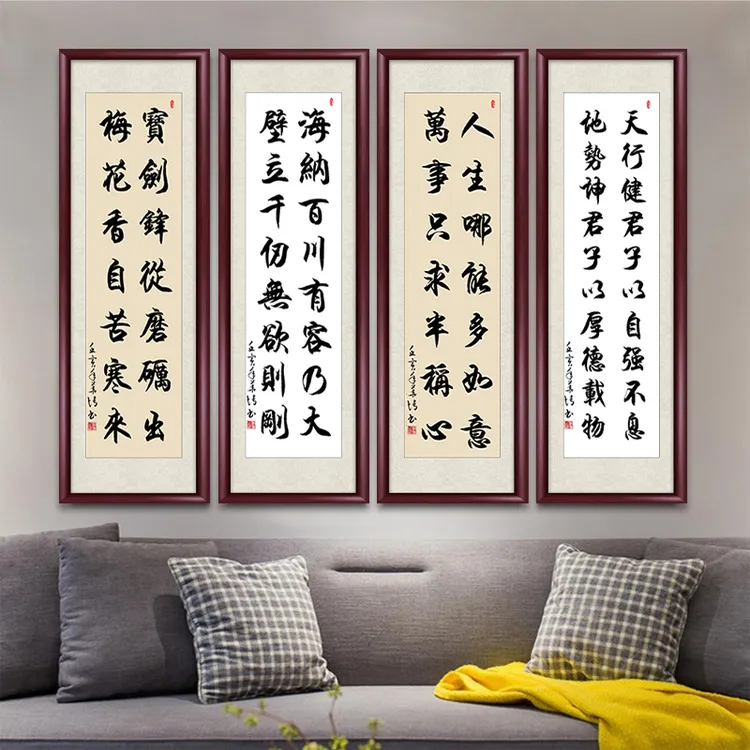 寶劍鋒從磨礪出
梅花香自苦寒來
海納百川有容乃大
壁立千仞無欲則剛
人生哪能多如意
萬事只求半稱心
天行健君子以自强不息
地勢坤君子以厚德載物